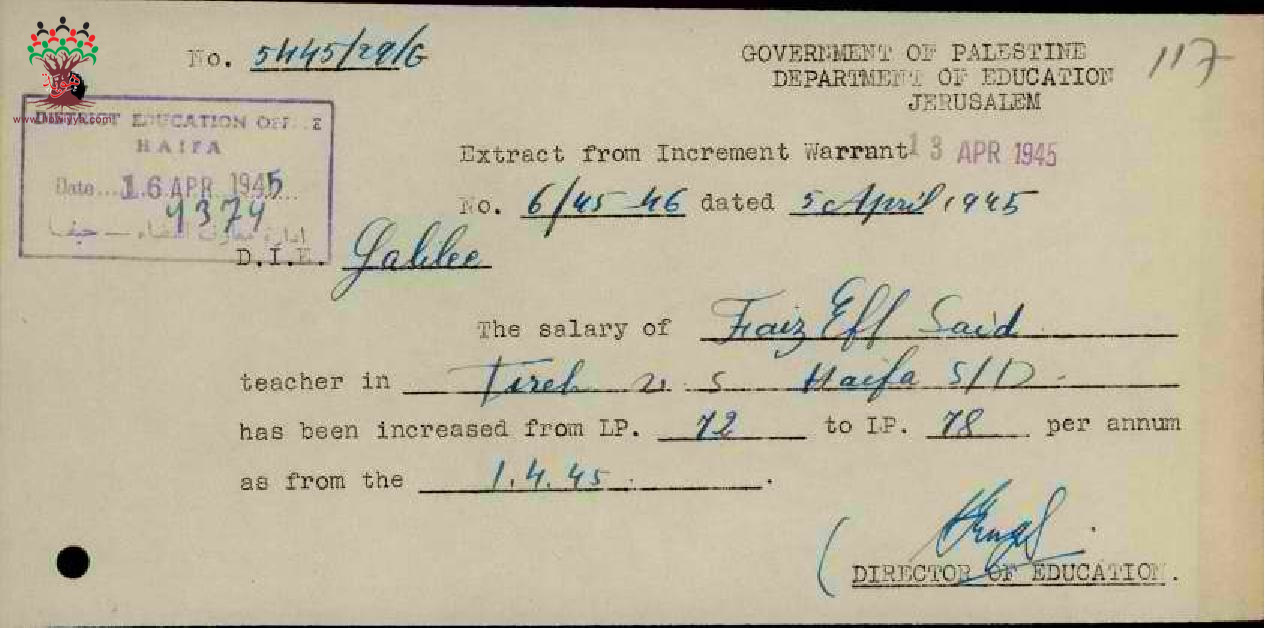 No. 5445/29/G
117
GOVERNMENT OF PALESTINE
DEPARTMENT OF EDUCATION
JERUSALEM
www.howiyya.com
DISTRICT EDUCATION OFFICE
HAIFA
Date... 16 APR 1945...
4374
إدارة معارف اللواء — حيفا
Extract from Increment Warrant 13 APR 1945
No. 6/45-46 dated 5 April 1945
D.I.E. Galilee
The salary of Faiz Eff Said
teacher in Tireh v. s Haifa S/D.
has been increased from LP. 72 to LP. 78 per annum
as from the 1.4.45.
DIRECTOR OF EDUCATION.